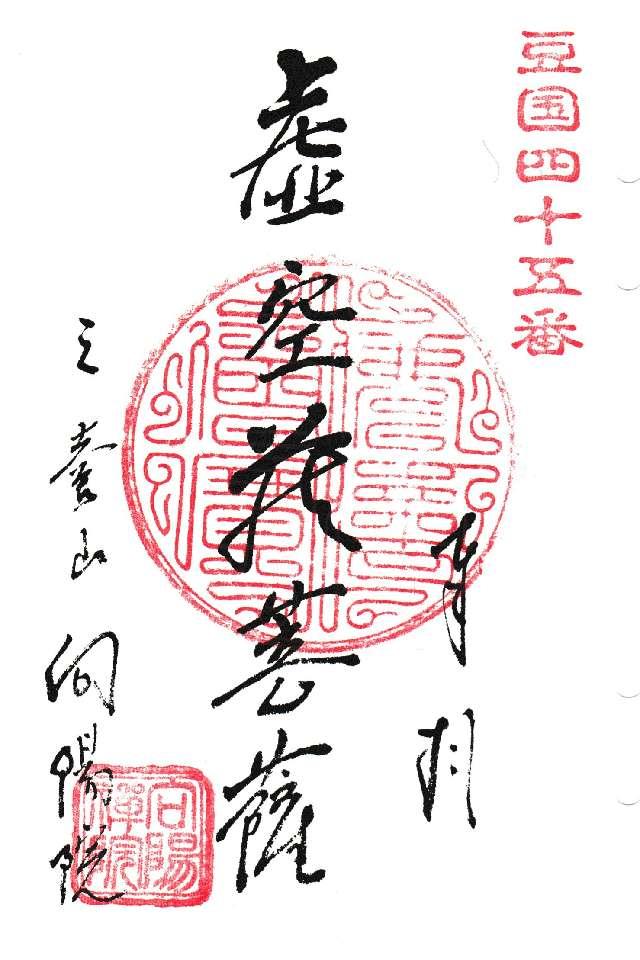 豆国四十五番
奉拝
虚空蔵菩薩
三養山 向陽院
向陽
禅院